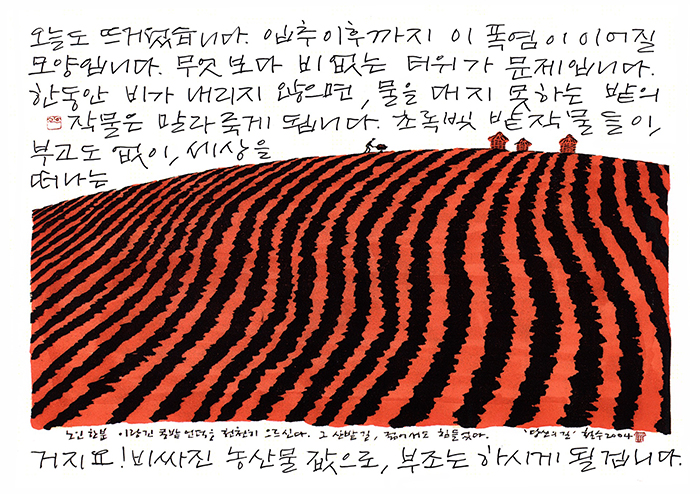 오늘도 뜨거웠습니다. 입추이후까지 이 폭염이 이어질
모양입니다. 무엇보다 비없는 더위가 문제입니다.
한동안 비가 내리지 않으면, 물을 대지 못하는 밭의
작물은 말라죽게 됩니다. 초록빛 밭작물들이,
부고도 없이, 세상을
떠나는
노인 한분 이랑긴 콩밭 언덕을 천천히 오르신다. 그 산밭길, 젊어서도 힘들었다. '당신의 길' 철수 2004
거지요! 비싸진 농산물 값으로, 부조는 하시게 될겁니다.